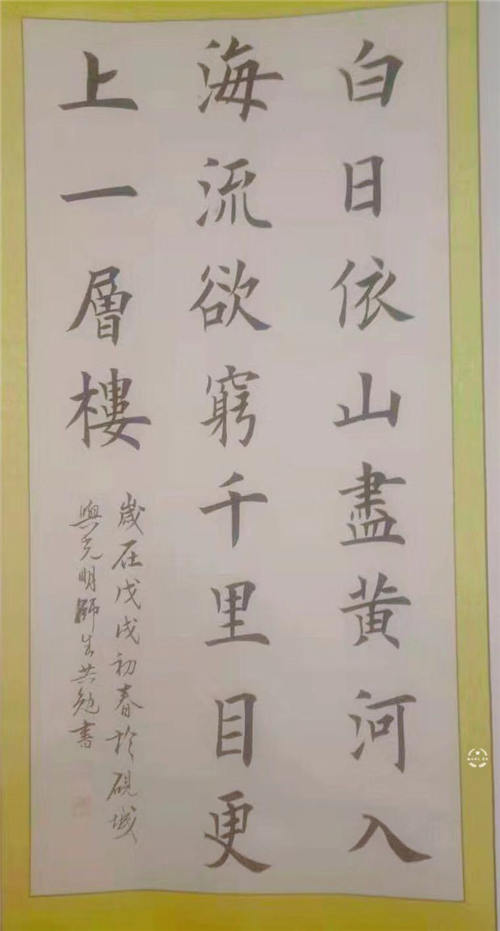 白日依山盡黃河入
海流欲窮千里目更
上一層樓
歲在戊戌初春於硯城
與克明師生共勉書